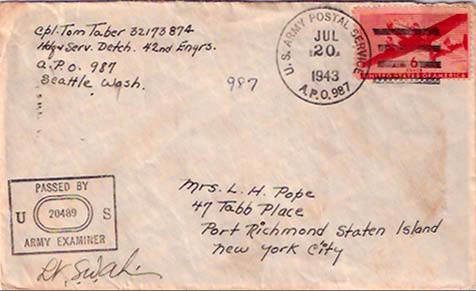 Cpl. Tom Taber 32173874
Hdq + Serv. Detch. 42nd Engrs.
A.P.O. 987
Seattle Wash.
987
U.S. ARMY POSTAL SERVICE
JUL
20
1943
A.P.O. 987
6
CENTS
UNITED STATES OF AMERICA
PASSED BY
U 20489 S
ARMY EXAMINER
Mrs. L. H. Pope
47 Tabb Place
Port Richmond Staten Island
New York City